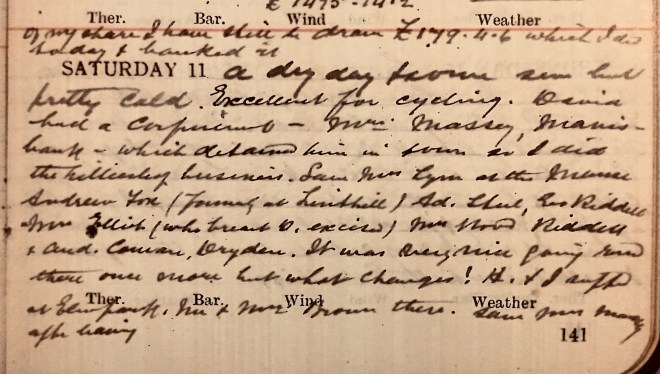 £1475-14-2
Ther. Bar. Wind Weather
of my share I have still to draw £179.4.6 which I do
today & banked it
SATURDAY 11 A dry day & some sun but
pretty cold. Excellent for cycling. David
had a confinement – Mrs Massey, Manis-
bank – which detained him in town so I did
the business. Saw Mrs Lyn at the Manse
Andrew Fox (formerly at Linthill) Ad. Riddell
Mrs Elliot (who breast D. excised) Mrs Wood Riddell
& And. Cowan, Dryden. It was very nice going round
there once more but what changes! H. & I
Ther. Bar. Wind Weather
at Elmpark. Mr & Mrs Brown there. Saw Mrs Massey
after leaving
141